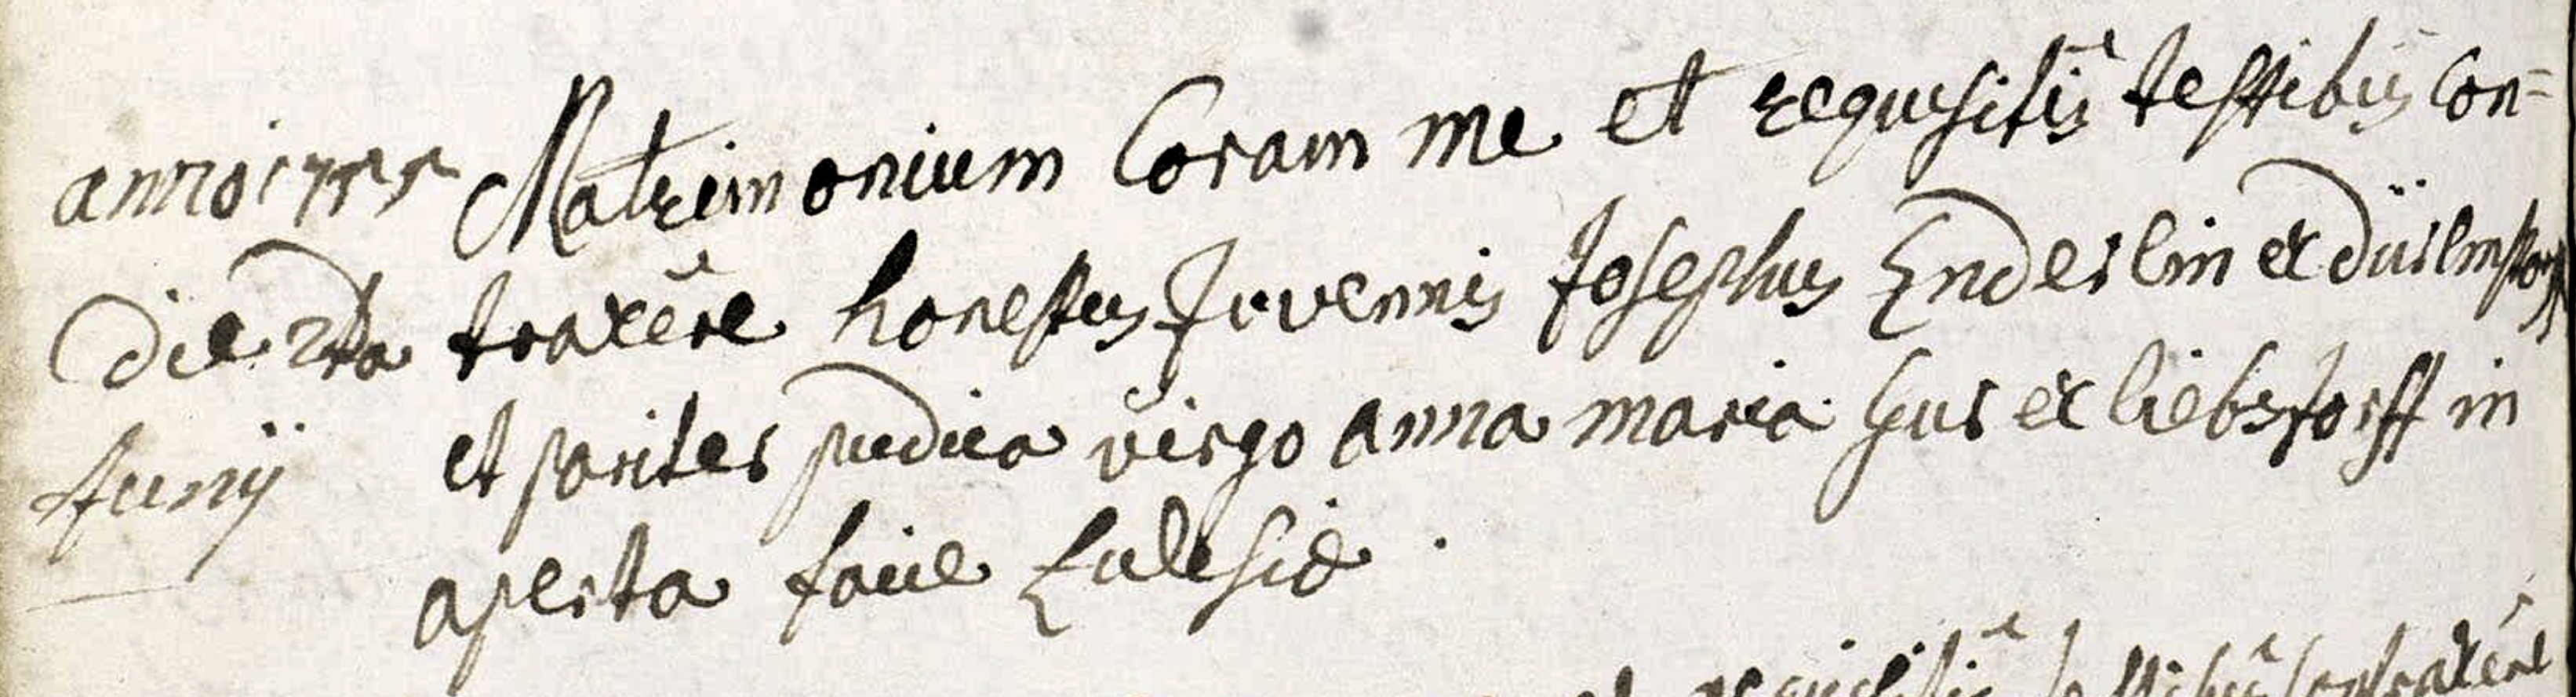 anno 1755 Matrimonium Coram me et requisitis testibus Con=
die 2da traxere honestus Juvennis Josephus Enderlin ex
Junij et pariter pudica virgo anna maria ex liebstorff in
aperta facie Ecclesiae .
requisitis testibus Contraxere